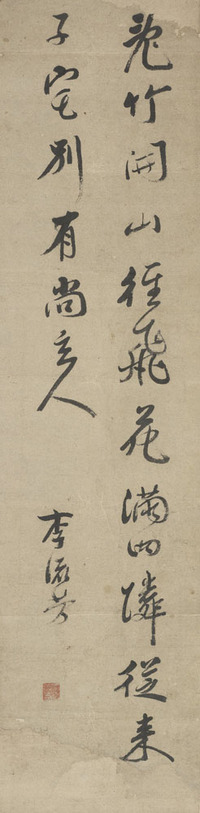 竹開山徑飛花滿四隣從来
子宅別有尚玄人
李流芳